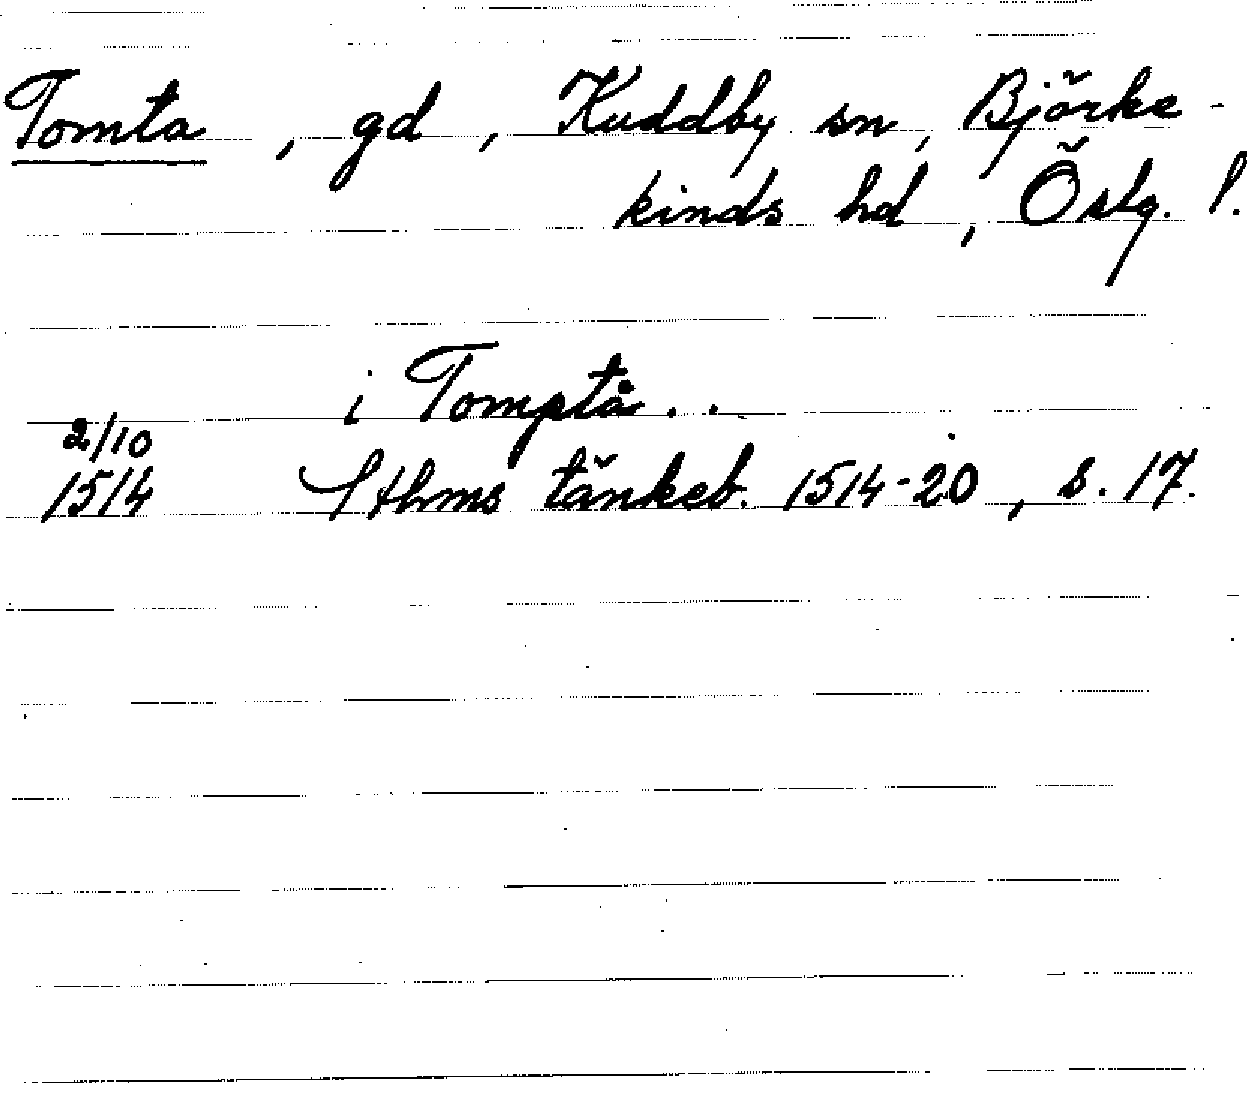 Tomta, gd, Kuddby sn, Björke-
kinds hd, Östg. l.
i Tomptå..
2/10
1514 Sthms tänkeb. 1514-20, s. 17.